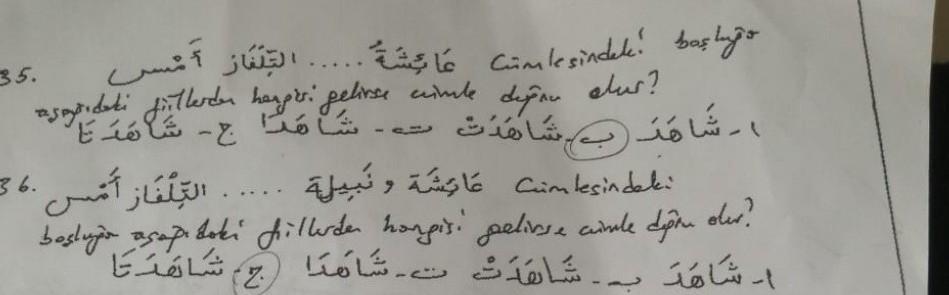 35. عَائِشَةُ ..... التِّلْفَاز أَمْس cümlesindeki boşluğa
aşağıdaki fiillerden hangisi gelirse cümle doğru olur?
ا- شَاهَدَ ب- شَاهَدَتْ ت- شَاهَدَا ج- شَاهَدَتَا
36. عَائِشَة و نَبِيلَة ..... التِّلْفَاز أَمْس cümlesindeki
boşluğa aşağıdaki fiillerden hangisi gelirse cümle doğru olur?
ا- شَاهَدَ ب- شَاهَدَتْ ت- شَاهَدَا ج- شَاهَدَتَا